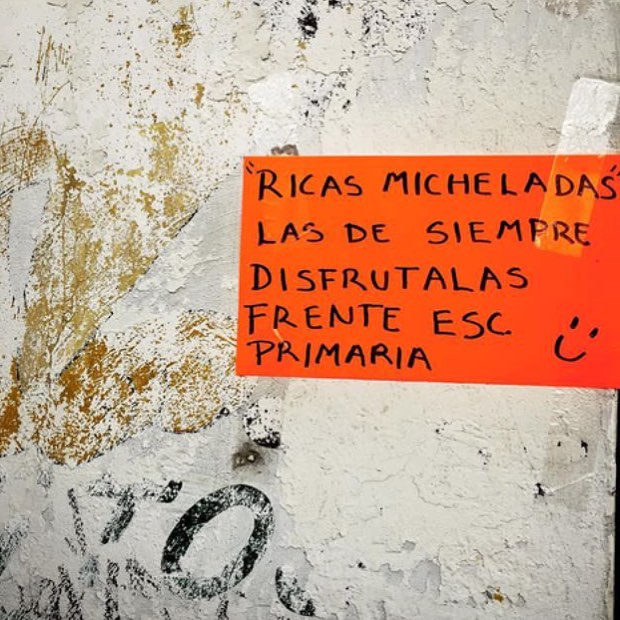 "RICAS MICHELADAS"
LAS DE SIEMPRE
DISFRUTALAS
FRENTE ESC.
PRIMARIA
TO